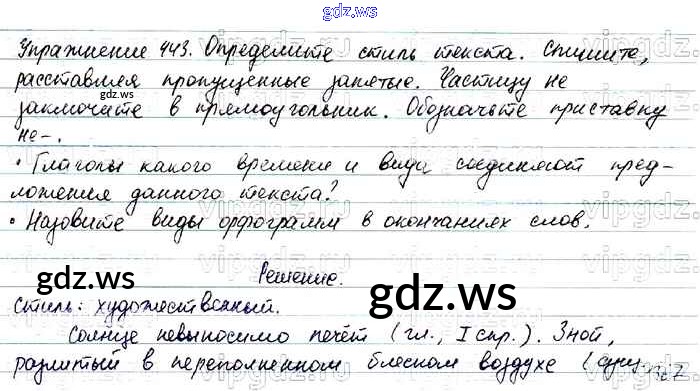 gdz.ws
Упражнение 443. Определите стиль текста. Спишите,
расставляя пропущенные запятые. Частицу не
заключайте в прямоугольник. Обозначьте приставку
не-.
• Глаголы какого времени и вида соединяют пред-
ложения данного текста?
• Назовите виды орфограмм в окончаниях слов.
Решение.
gdz.ws
gdz.ws
Стиль: художественный.
Солнце невыносимо печёт (гл., I спр.). Зной,
разлитый в переполненном блеском воздухе (сущ